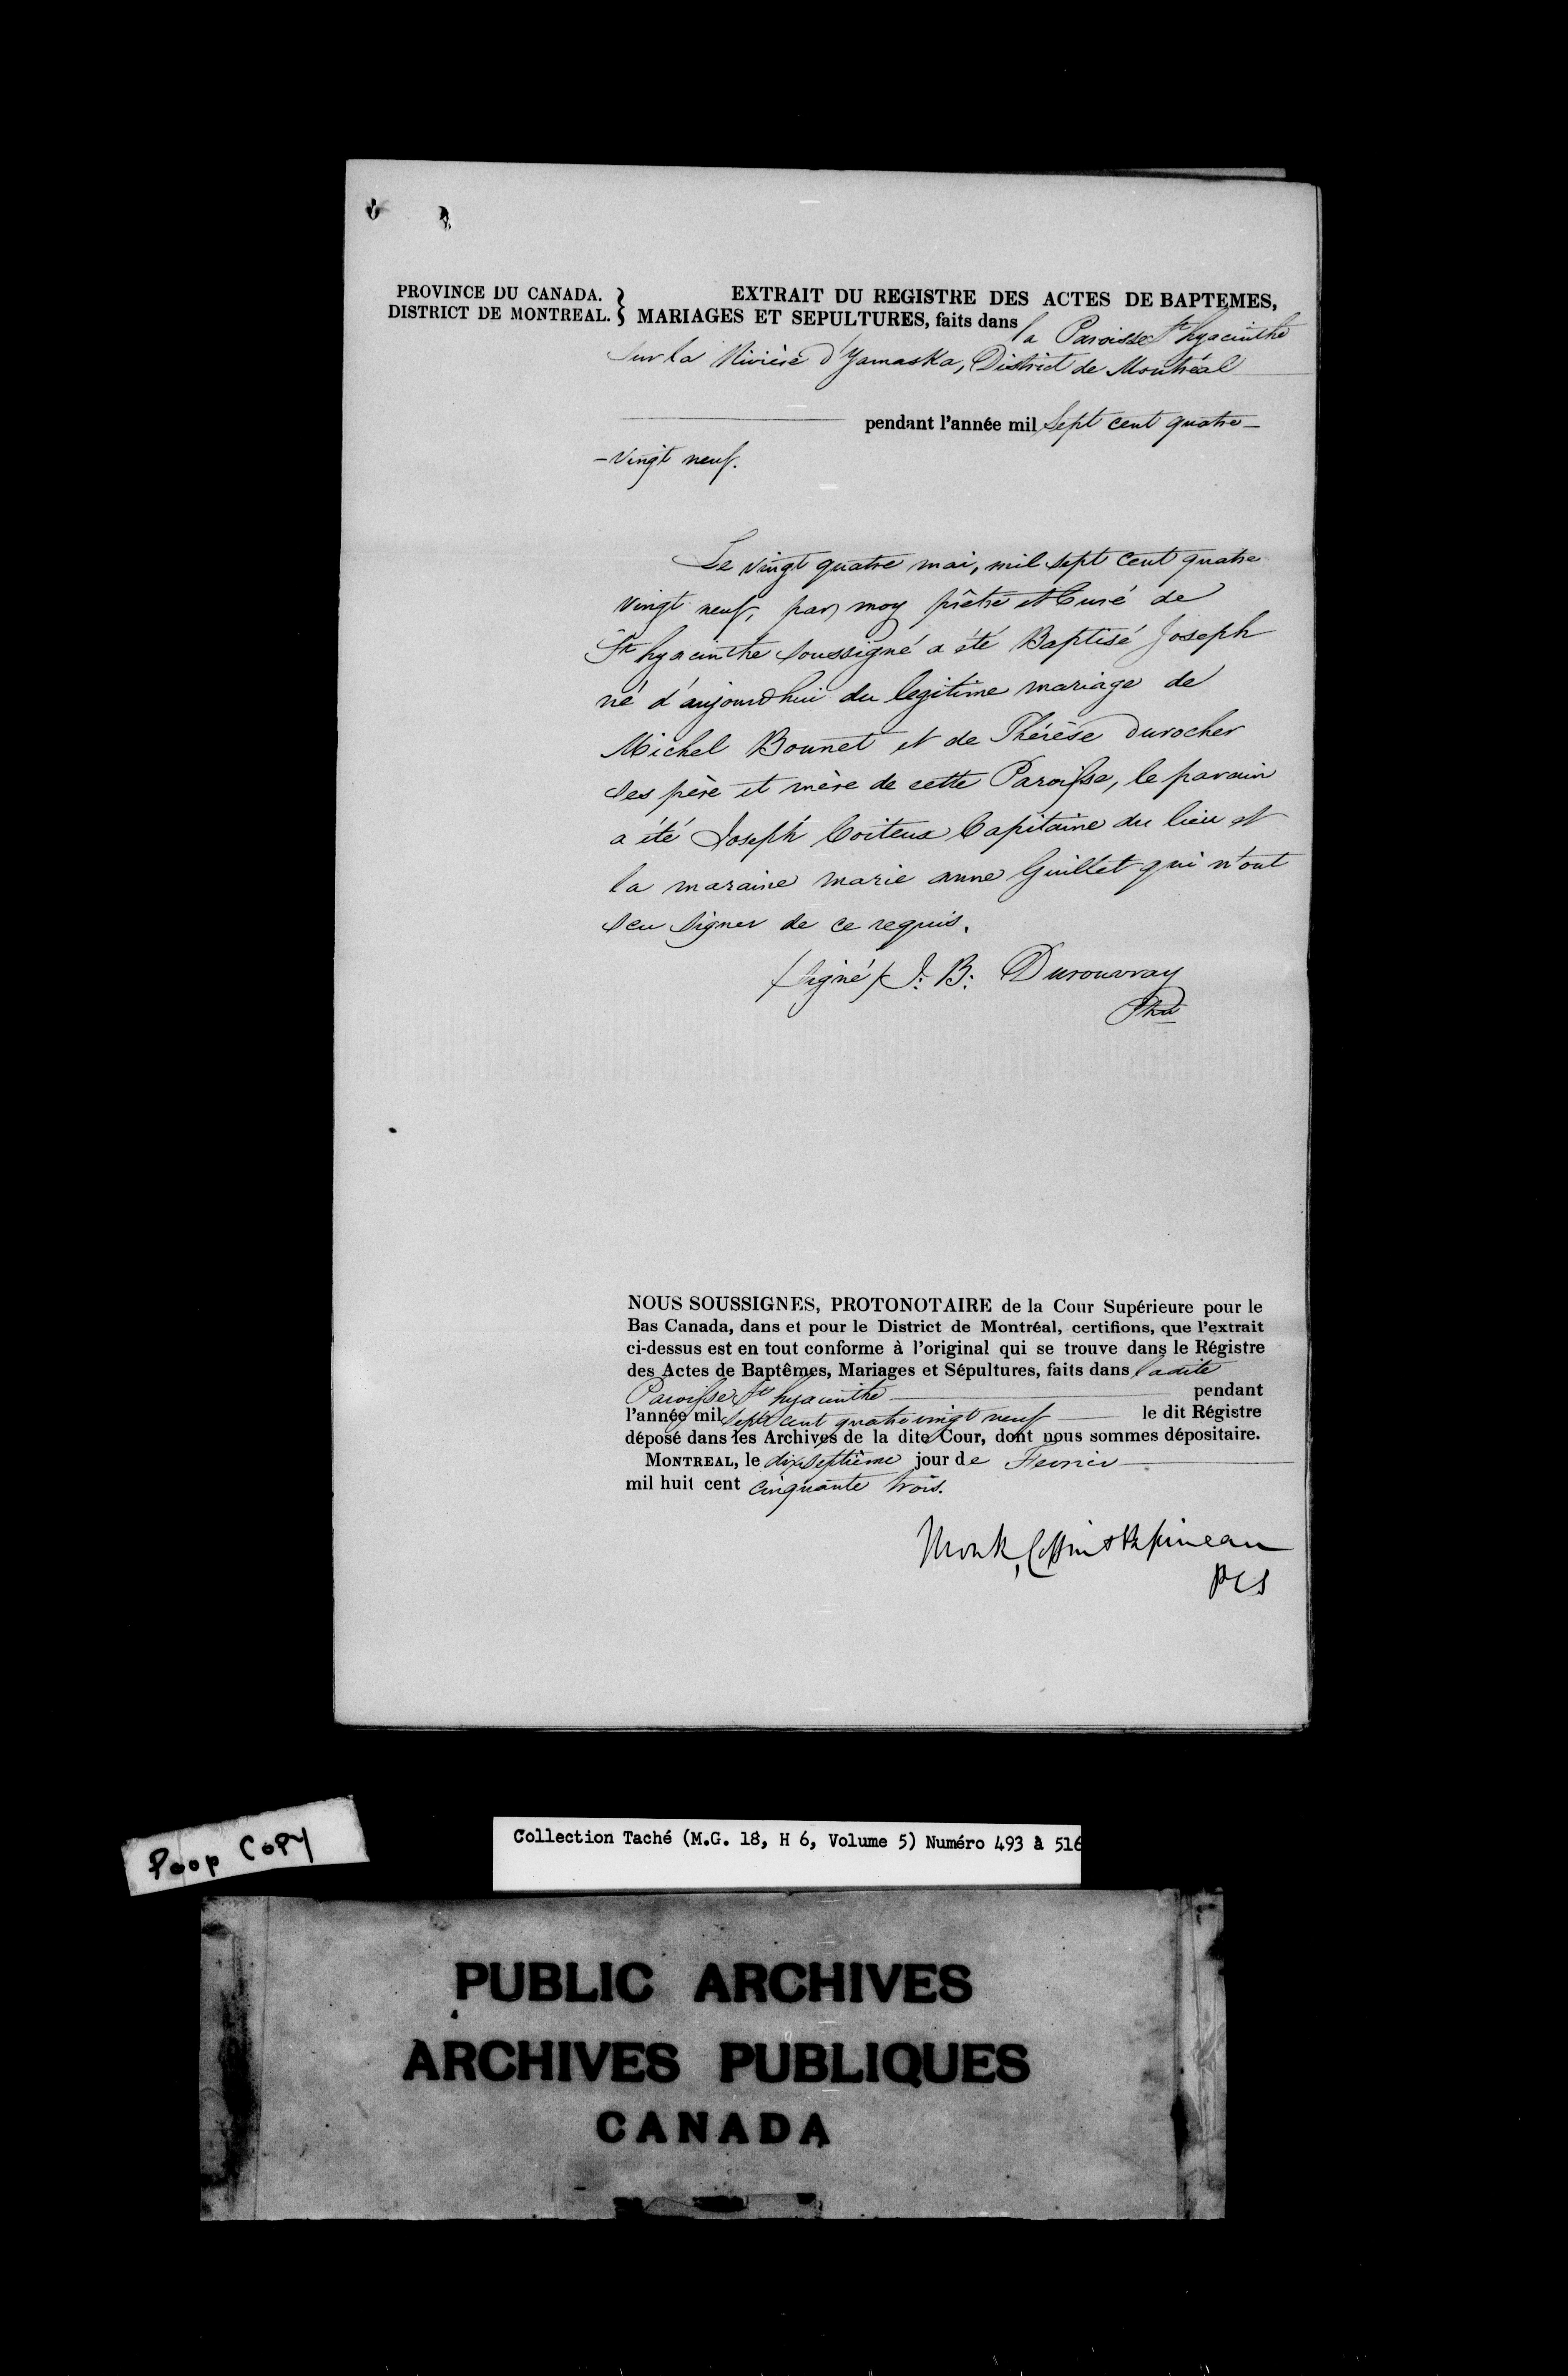 PROVINCE DU CANADA.
DISTRICT DE MONTREAL.
EXTRAIT DU REGISTRE DES ACTES DE BAPTEMES,
MARIAGES ET SEPULTURES, faits dans la Paroisse St hyacinthe
sur la Rivière d'Yamaska, District de Montréal
pendant l'année mil sept cent quatre-
-vingt neuf.
Le vingt quatre mai, mil sept cent quatre
vingt neuf, par moy prêtre et Curé de
St hyacinthe soussigné a été Baptisé Joseph
né d'aujourdhui du legitime mariage de
Michel Bounet et de Thérèse Durocher
ses père et mère de cette Paroisse, le parain
a été Joseph Coiteux Capitaine du lieu et
la maraine marie anne Guillet qui n'ont
scu signer de ce requis.
/signé/ J: B: Durouvray
Ptre
NOUS SOUSSIGNES, PROTONOTAIRE de la Cour Supérieure pour le
Bas Canada, dans et pour le District de Montréal, certifions, que l'extrait
ci-dessus est en tout conforme à l'original qui se trouve dans le Régistre
des Actes de Baptêmes, Mariages et Sépultures, faits dans ladite
Paroisse St hyacinthe pendant
l'année mil sept cent quatre vingt neuf le dit Régistre
déposé dans les Archives de la dite Cour, dont nous sommes dépositaire.
MONTREAL, le dix septième jour de Fevrier
mil huit cent cinquante trois.
Monk, Coffin & Papineau
PCS
Poop COPY
Collection Taché (M.G. 18, H 6, Volume 5) Numéro 493 à 516
PUBLIC ARCHIVES
ARCHIVES PUBLIQUES
CANADA